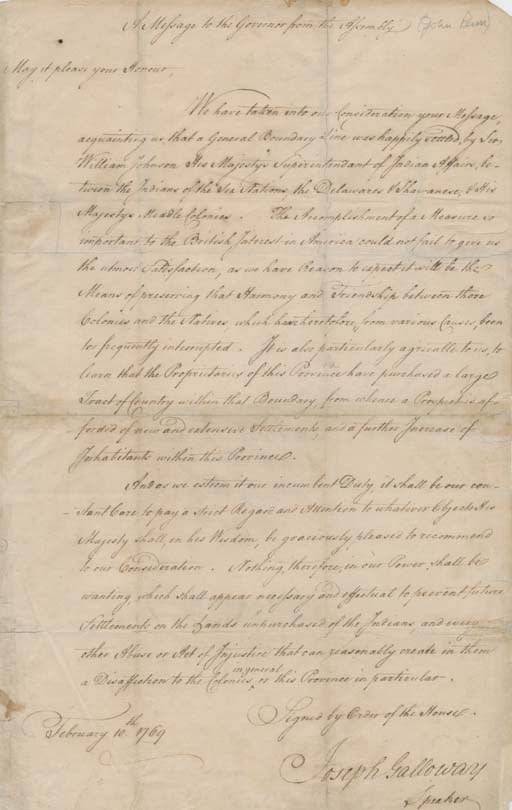 A Message to the Governor from the Assembly (John Penn)
May it please your Honour,
We have taken into our Consideration your Message,
acquainting us that a General Boundary Line was happily settled, by Sir,
William Johnson His Majesty's Superintendant of Indian Affairs, be-
tween the Indians of the Six Nations, the Delawares & Shawanese, & His
Majestys Middle Colonies. The Accomplishment of a Measure so
important to the British Interest in America could not fail to give us
the utmost Satisfaction, as we have Reason to expect it will be the
Means of preserving that Harmony and Friendship between those
Colonies and the Natives, which have heretofore, from various Causes, been
too frequently interrupted. It is also particularly agreeable to us, to
learn that the Proprietaries of this Province have purchased a large
Tract of Country within that Boundary, from whence a Prospect is af-
forded of new and extensive Settlements, and a further Increase of
Inhabitants within this Province.
And as we esteem it our incumbent Duty, it shall be our con-
stant Care to pay a strict Regard and Attention to whatever Objects His
Majesty shall, in his Wisdom, be graciously pleased to recommend
to our Consideration. Nothing, therefore, in our Power shall be
wanting, which shall appear necessary and effectual to prevent future
Settlements on the Lands unpurchased of the Indians, and every
other Abuse or Act of Injustice that can reasonably create in them
a Disaffection to the Colonies in general, or this Province in particular.
Signed by Order of the House.
February 10th 1769
Joseph Galloway
Speaker